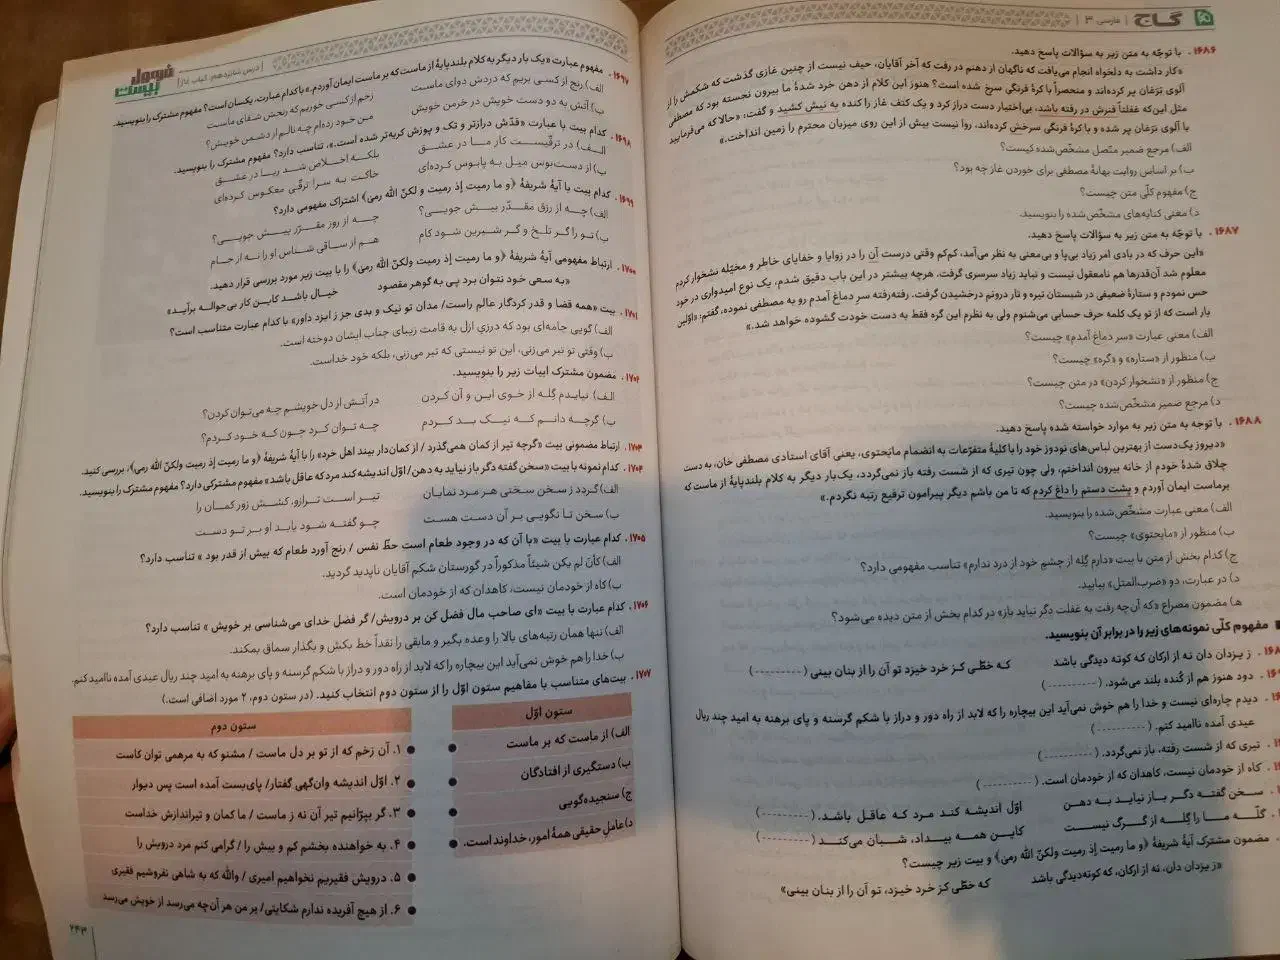 گاج | فارسی ۳
۱۶۸۶. با توجّه به متن زیر به سؤالات پاسخ دهید.
«کار داشت به دلخواه انجام می‌یافت که ناگهان از دهنم در رفت که آخر آقایان، حیف نیست از چنین غازی گذشت که شکمش را از
آلوی برغان پر کرده‌اند و منحصراً با کرهٔ فرنگی سرخ شده است؟ هنوز این کلام از دهن خرد شدهٔ ما بیرون نجسته بود که مصطفی
مثل این‌که غفلتاً فنرش در رفته باشد، بی‌اختیار دست دراز کرد و یک کتف غاز را کنده به نیش کشید و گفت: «حالا که می‌فرمایید
با آلوی برغان پر شده و با کرهٔ فرنگی سرخش کرده‌اند، روا نیست بیش از این روی میزبان محترم را زمین انداخت.»
الف) مرجع ضمیر متّصل مشخّص‌شده کیست؟
ب) بر اساس روایت بهانهٔ مصطفی برای خوردن غاز چه بود؟
ج) مفهوم کلّی متن چیست؟
د) معنی کنایه‌های مشخّص‌شده را بنویسید.
۱۶۸۷. با توجّه به متن زیر به سؤالات پاسخ دهید.
«این حرف که در بادی امر زیاد بی‌پا و بی‌معنی به نظر می‌آمد، کم‌کم وقتی درست آن را در زوایا و خفایای خاطر و مخیّله نشخوار کردم
معلوم شد آن‌قدرها هم نامعقول نیست و نباید زیاد سرسری گرفت. هرچه بیشتر در این باب دقیق شدم، یک نوع امیدواری در خود
حس نمودم و ستارهٔ ضعیفی در شبستان تیره و تار درونم درخشیدن گرفت. رفته‌رفته سر دماغ آمدم رو به مصطفی نموده، گفتم: «اوّلین
بار است که از تو یک کلمه حرف حسابی می‌شنوم ولی به نظرم این گره فقط به دست خودت گشوده خواهد شد.»
الف) معنی عبارت «سر دماغ آمدم» چیست؟
ب) منظور از «ستاره» و «گره» چیست؟
ج) منظور از «نشخوار کردن» در متن چیست؟
د) مرجع ضمیر مشخّص‌شده چیست؟
۱۶۸۸. با توجه به متن زیر به موارد خواسته شده پاسخ دهید.
«دیروز یک‌دست از بهترین لباس‌های نودوز خود را با کلیّهٔ متفرّعات به انضمام مایحتوی، یعنی آقای استادی مصطفی خان، به دست
چلاق شدهٔ خودم از خانه بیرون انداختم، ولی چون تیری که از شست رفته باز نمی‌گردد، یک‌بار دیگر به کلام بلندپایهٔ از ماست که
برماست ایمان آوردم و پشت دستم را داغ کردم که تا من باشم دیگر پیرامون ترفیع رتبه نگردم.»
الف) معنی عبارت مشخّص‌شده را بنویسید.
ب) منظور از «مایحتوی» چیست؟
ج) کدام بخش از متن با بیت «دارم گِله از چشم خود از درد ندارم» تناسب مفهومی دارد؟
د) در عبارت، دو «ضرب‌المثل» بیابید.
هـ) مضمون مصراع «که آن‌چه رفت به غفلت دگر نیاید باز» در کدام بخش از متن دیده می‌شود؟
مفهوم کلّی نمونه‌های زیر را در برابر آن بنویسید.
ز یـزدان دان نه از ارکان که کوته دیدگی باشد که خطّی کـز خرد خیزد تو آن را از بنان بینی (----------)
دود هنوز هم از کُنده بلند می‌شود. (----------)
دیدم چاره‌ای نیست و خدا را هم خوش نمی‌آید این بیچاره را که لابد از راه دور و دراز با شکم گرسنه و پای برهنه به امید چند ریال
عیدی آمده ناامید کنم. (----------)
تیری که از شست رفته، باز نمی‌گردد. (----------)
کاه از خودمان نیست، کاهدان که از خودمان است. (----------)
سخن گفته دگر باز نیاید به دهن اوّل اندیشه کند مرد که عاقل باشد. (----------)
گلّه ما را گِله از گرگ نیست کاین همه بیداد، شبان می‌کند (----------)
مضمون مشترک آیهٔ شریفهٔ ﴿و ما رمیت إذ رمیت ولکنّ الله رمیٰ﴾ و بیت زیر چیست؟
«ز یزدان دان، نه از ارکان، که کوته‌دیدگی باشد که خطّی کز خرد خیزد، تو آن را از بنان بینی»
درس شانزدهم: کباب غاز | فرمول بیست
۱۶۹۷. مفهوم عبارت «یک بار دیگر به کلام بلندپایهٔ از ماست که بر ماست ایمان آوردم.» با کدام عبارت، یکسان است؟ مفهوم مشترک را بنویسید.
الف) رنج از کسی بریم که دردش دوای ماست زخم از کسی خوریم که رنجش شفای ماست
ب) آتش به دو دست خویش در خرمن خویش من خود زده‌ام چه نالم از دشمن خویش؟
۱۶۹۸. کدام بیت با عبارت «قدّش درازتر و تک و پوزش کریه‌تر شده است.»، تناسب دارد؟ مفهوم مشترک را بنویسید.
الف) در ترقّیست کار ما در عشق بلکه اخلاص شد ریا در عشق
ب) از دست‌بوس میل به پابوس کرده‌ای خاکت به سر! ترقّی معکوس کرده‌ای
۱۶۹۹. کدام بیت با آیهٔ شریفهٔ ﴿و ما رمیت إذ رمیت و لکنّ الله رمیٰ﴾ اشتراک مفهومی دارد؟
الف) چه از رزق مقدّر بیش جویی؟ چه از روز مقرّر بیش جویی؟
ب) تو را گر تلخ و گر شیرین شود کام هم از ساقی شناس او را نه از جام
۱۷۰۰. ارتباط مفهومی آیهٔ شریفهٔ ﴿و ما رمیت إذ رمیت ولکنّ الله رمیٰ﴾ را با بیت زیر مورد بررسی قرار دهید.
«به سعی خود نتوان برد پی به گوهر مقصود خیال باشد کاین کار بی‌حواله برآید»
۱۷۰۱. بیت «همه قضا و قدر کردگار عالم راست/ مدان تو نیک و بدی جز ز ایزد داور» با کدام عبارت متناسب است؟
الف) گویی جامه‌ای بود که درزیِ ازل به قامت زیبای جناب ایشان دوخته است.
ب) وقتی تو تیر می‌زنی، این تو نیستی که تیر می‌زنی، بلکه خود خداست.
۱۷۰۲. مضمون مشترک ابیات زیر را بنویسید.
الف) نبایدم گِله از خوی این و آن کردن در آتش از دل خویشم چه می‌توان کردن؟
ب) گرچه دانم که نیک بد کردم چه توان کرد چون که خود کردم؟
۱۷۰۳. ارتباط مضمونی بیت «گرچه تیر از کمان همی‌گذرد / از کمان‌دار بیند اهل خرد» را با آیهٔ شریفهٔ ﴿و ما رمیت إذ رمیت ولکنّ الله رمیٰ﴾، بررسی کنید.
۱۷۰۴. کدام نمونه با بیت «سخن گفته دگر باز نیاید به دهن/ اوّل اندیشه کند مرد که عاقل باشد» مفهوم مشترکی دارد؟ مفهوم مشترک را بنویسید.
الف) گردد ز سخن سختی هر مرد نمایان تیر است ترازو، کشش زور کمان را
ب) سخن تا نگویی بر آن دست هست چو گفته شود یابد او بر تو دست
۱۷۰۵. کدام عبارت با بیت «با آن که در وجود طعام است حظّ نفس / رنج آورد طعام که بیش از قدر بود» تناسب دارد؟
الف) کأن لم یکن شیئاً مذکوراً در گورستان شکم آقایان ناپدید گردید.
ب) کاه از خودمان نیست، کاهدان که از خودمان است.
۱۷۰۶. کدام عبارت با بیت «ای صاحب مال فضل کن بر درویش/ گر فضل خدای می‌شناسی بر خویش» تناسب دارد؟
الف) تنها همان رتبه‌های بالا را وعده بگیر و مابقی را نقداً خط بکش و بگذار سماق بمکند.
ب) خدا را هم خوش نمی‌آید این بیچاره را که لابد از راه دور و دراز با شکم گرسنه و پای برهنه به امید چند ریال عیدی آمده ناامید کنم.
۱۷۰۷. بیت‌های متناسب با مفاهیم ستون اوّل را از ستون دوم انتخاب کنید. (در ستون دوم، ۲ مورد اضافی است.)
ستون اوّل
الف) از ماست که بر ماست
ب) دستگیری از افتادگان
ج) سنجیده‌گویی
د) عاملِ حقیقی همهٔ امور، خداوند است.
ستون دوم
۱. آن زخم که از تو بر دل ماست / مشنو که به مرهمی توان کاست
۲. اوّل اندیشه وان‌گهی گفتار/ پای‌بست آمده است پس دیوار
۳. گر بپرّانیم تیر آن نه ز ماست / ما کمان و تیراندازش خداست
۴. به خواهنده بخشم کم و بیش را / گرامی کنم مرد درویش را
۵. درویش فقیریم نخواهیم امیری / والله که به شاهی نفروشیم فقیری
۶. از هیچ آفریده ندارم شکایتی/ بر من هر آن‌چه می‌رسد از خویش می‌رسد
۲۴۳